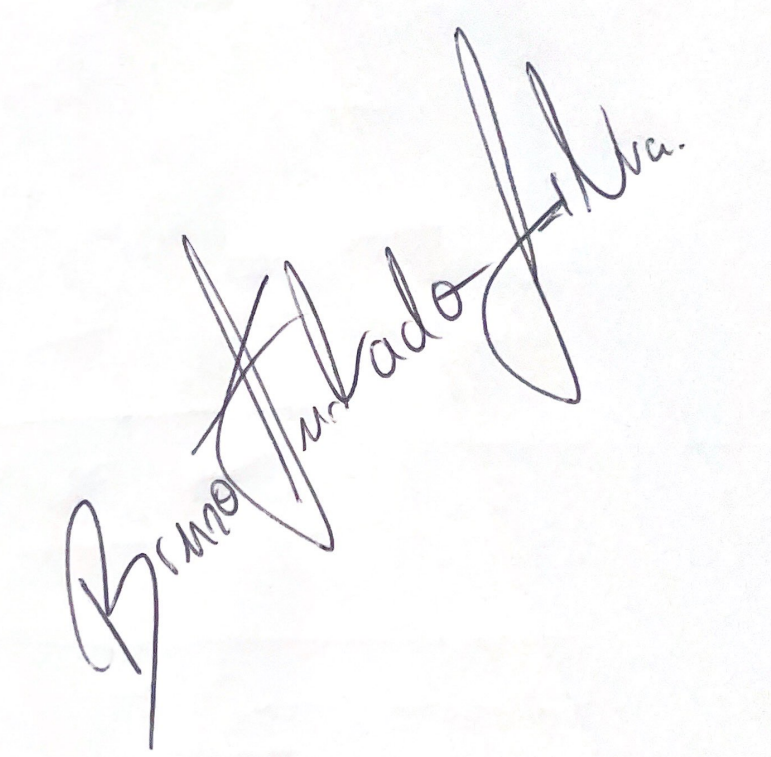 Bruno Furtado Silva.